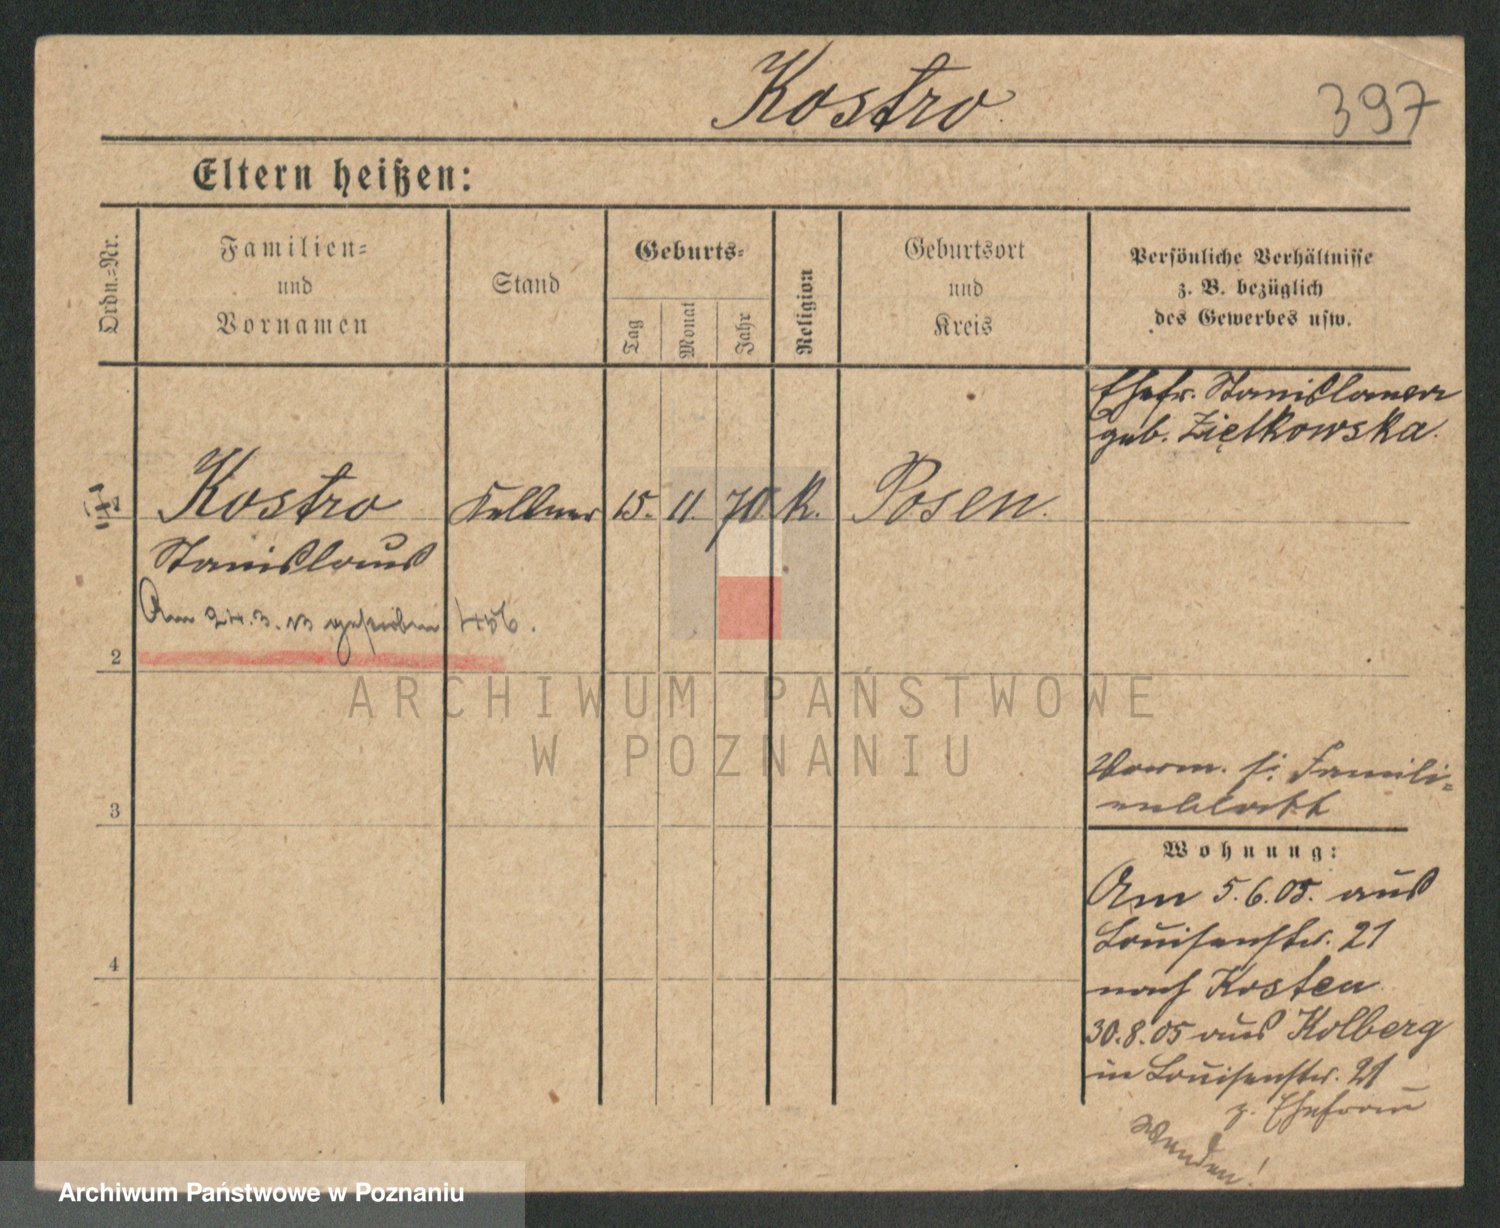 Kostro
397
Eltern heißen:
Ordn.-Nr.
Familien-
und
Vornamen
Stand
Geburts-
Tag
Monat
Jahr
Religion
Geburtsort
und
Kreis
Persönliche Verhältnisse
z. B. bezüglich
des Gewerbes usw.
Ehefr. Stanislawa
geb. Ziętkowska.
1
Kostro Kellner 15. 11. 70 k. Posen.
Stanislaus
Am 24.3.13 gestorben 456.
2
ARCHIWUM PAŃSTWOWE
W POZNANIU
Verm. s. Famili-
enblatt
3
Wohnung:
Am 5.6.05. aus
Louisenstr. 21
nach Kosten
4
30.8.05 aus Kolberg
in Louisenstr. 21
z. Ehefrau
Wenden!
Archiwum Państwowe w Poznaniu